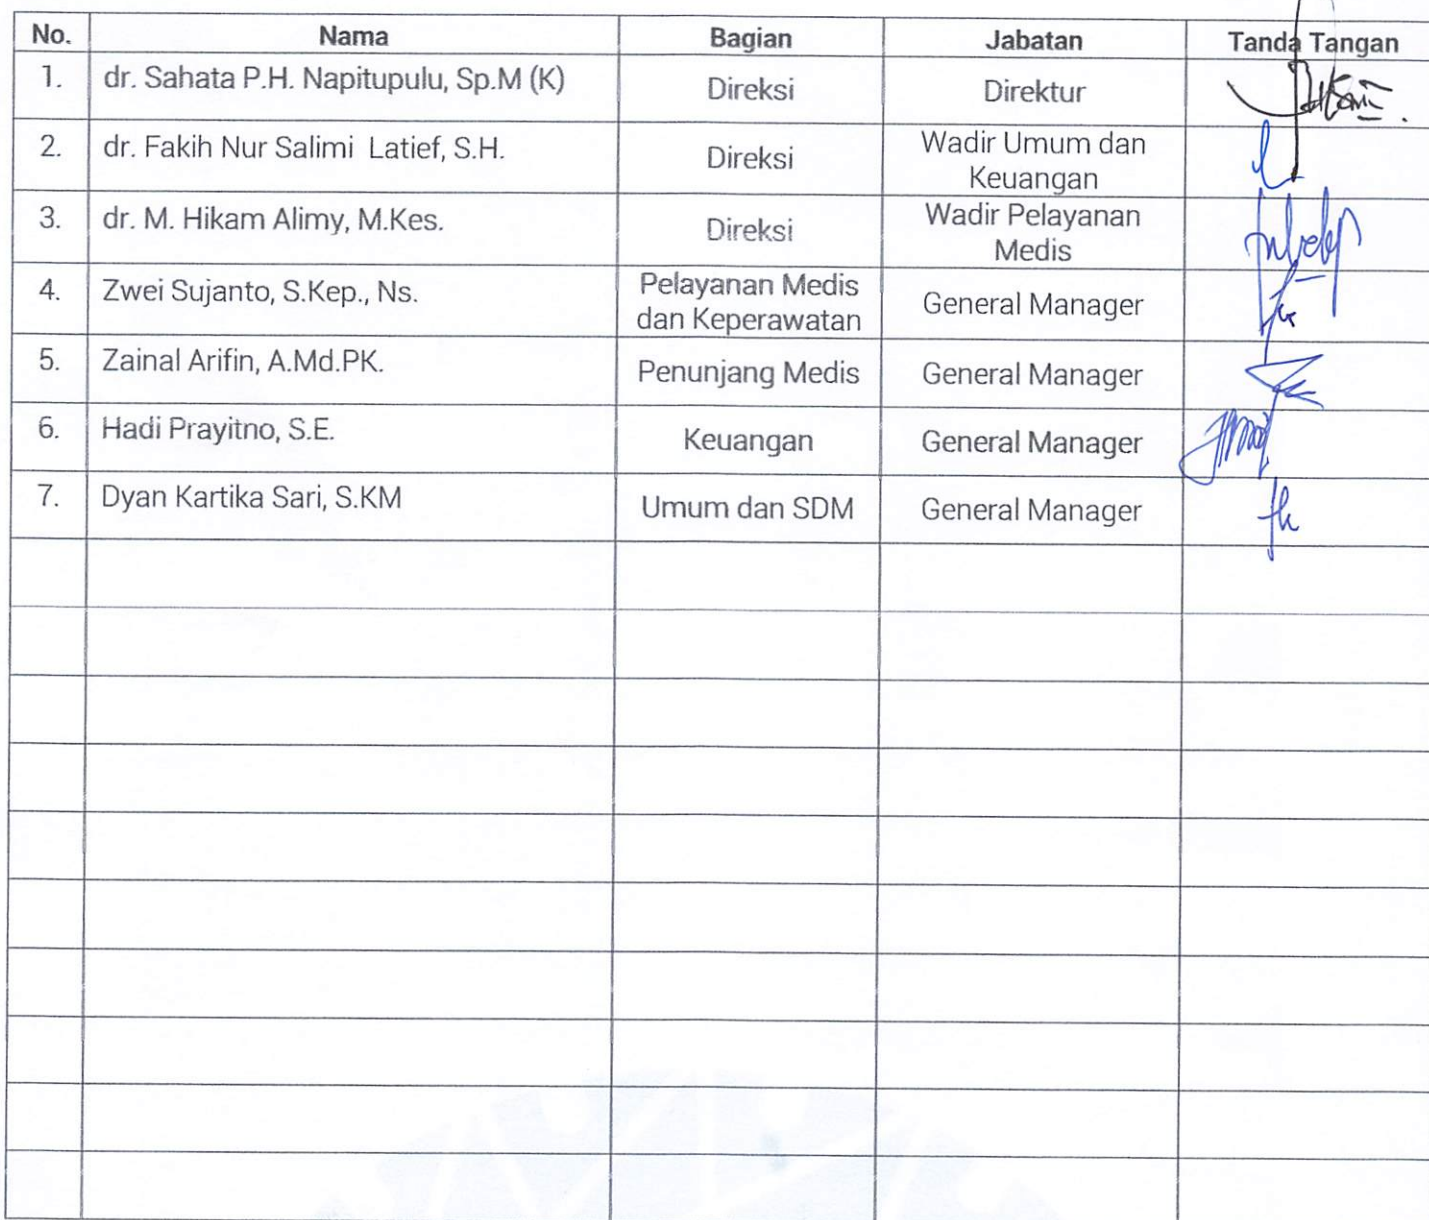 No. Nama Bagian Jabatan Tanda Tangan
1. dr. Sahata P.H. Napitupulu, Sp.M (K) Direksi Direktur
2. dr. Fakih Nur Salimi Latief, S.H. Direksi Wadir Umum dan
Keuangan
3. dr. M. Hikam Alimy, M.Kes. Direksi Wadir Pelayanan
Medis
4. Zwei Sujanto, S.Kep., Ns. Pelayanan Medis
dan Keperawatan General Manager
5. Zainal Arifin, A.Md.PK. Penunjang Medis General Manager
6. Hadi Prayitno, S.E. Keuangan General Manager
7. Dyan Kartika Sari, S.KM Umum dan SDM General Manager